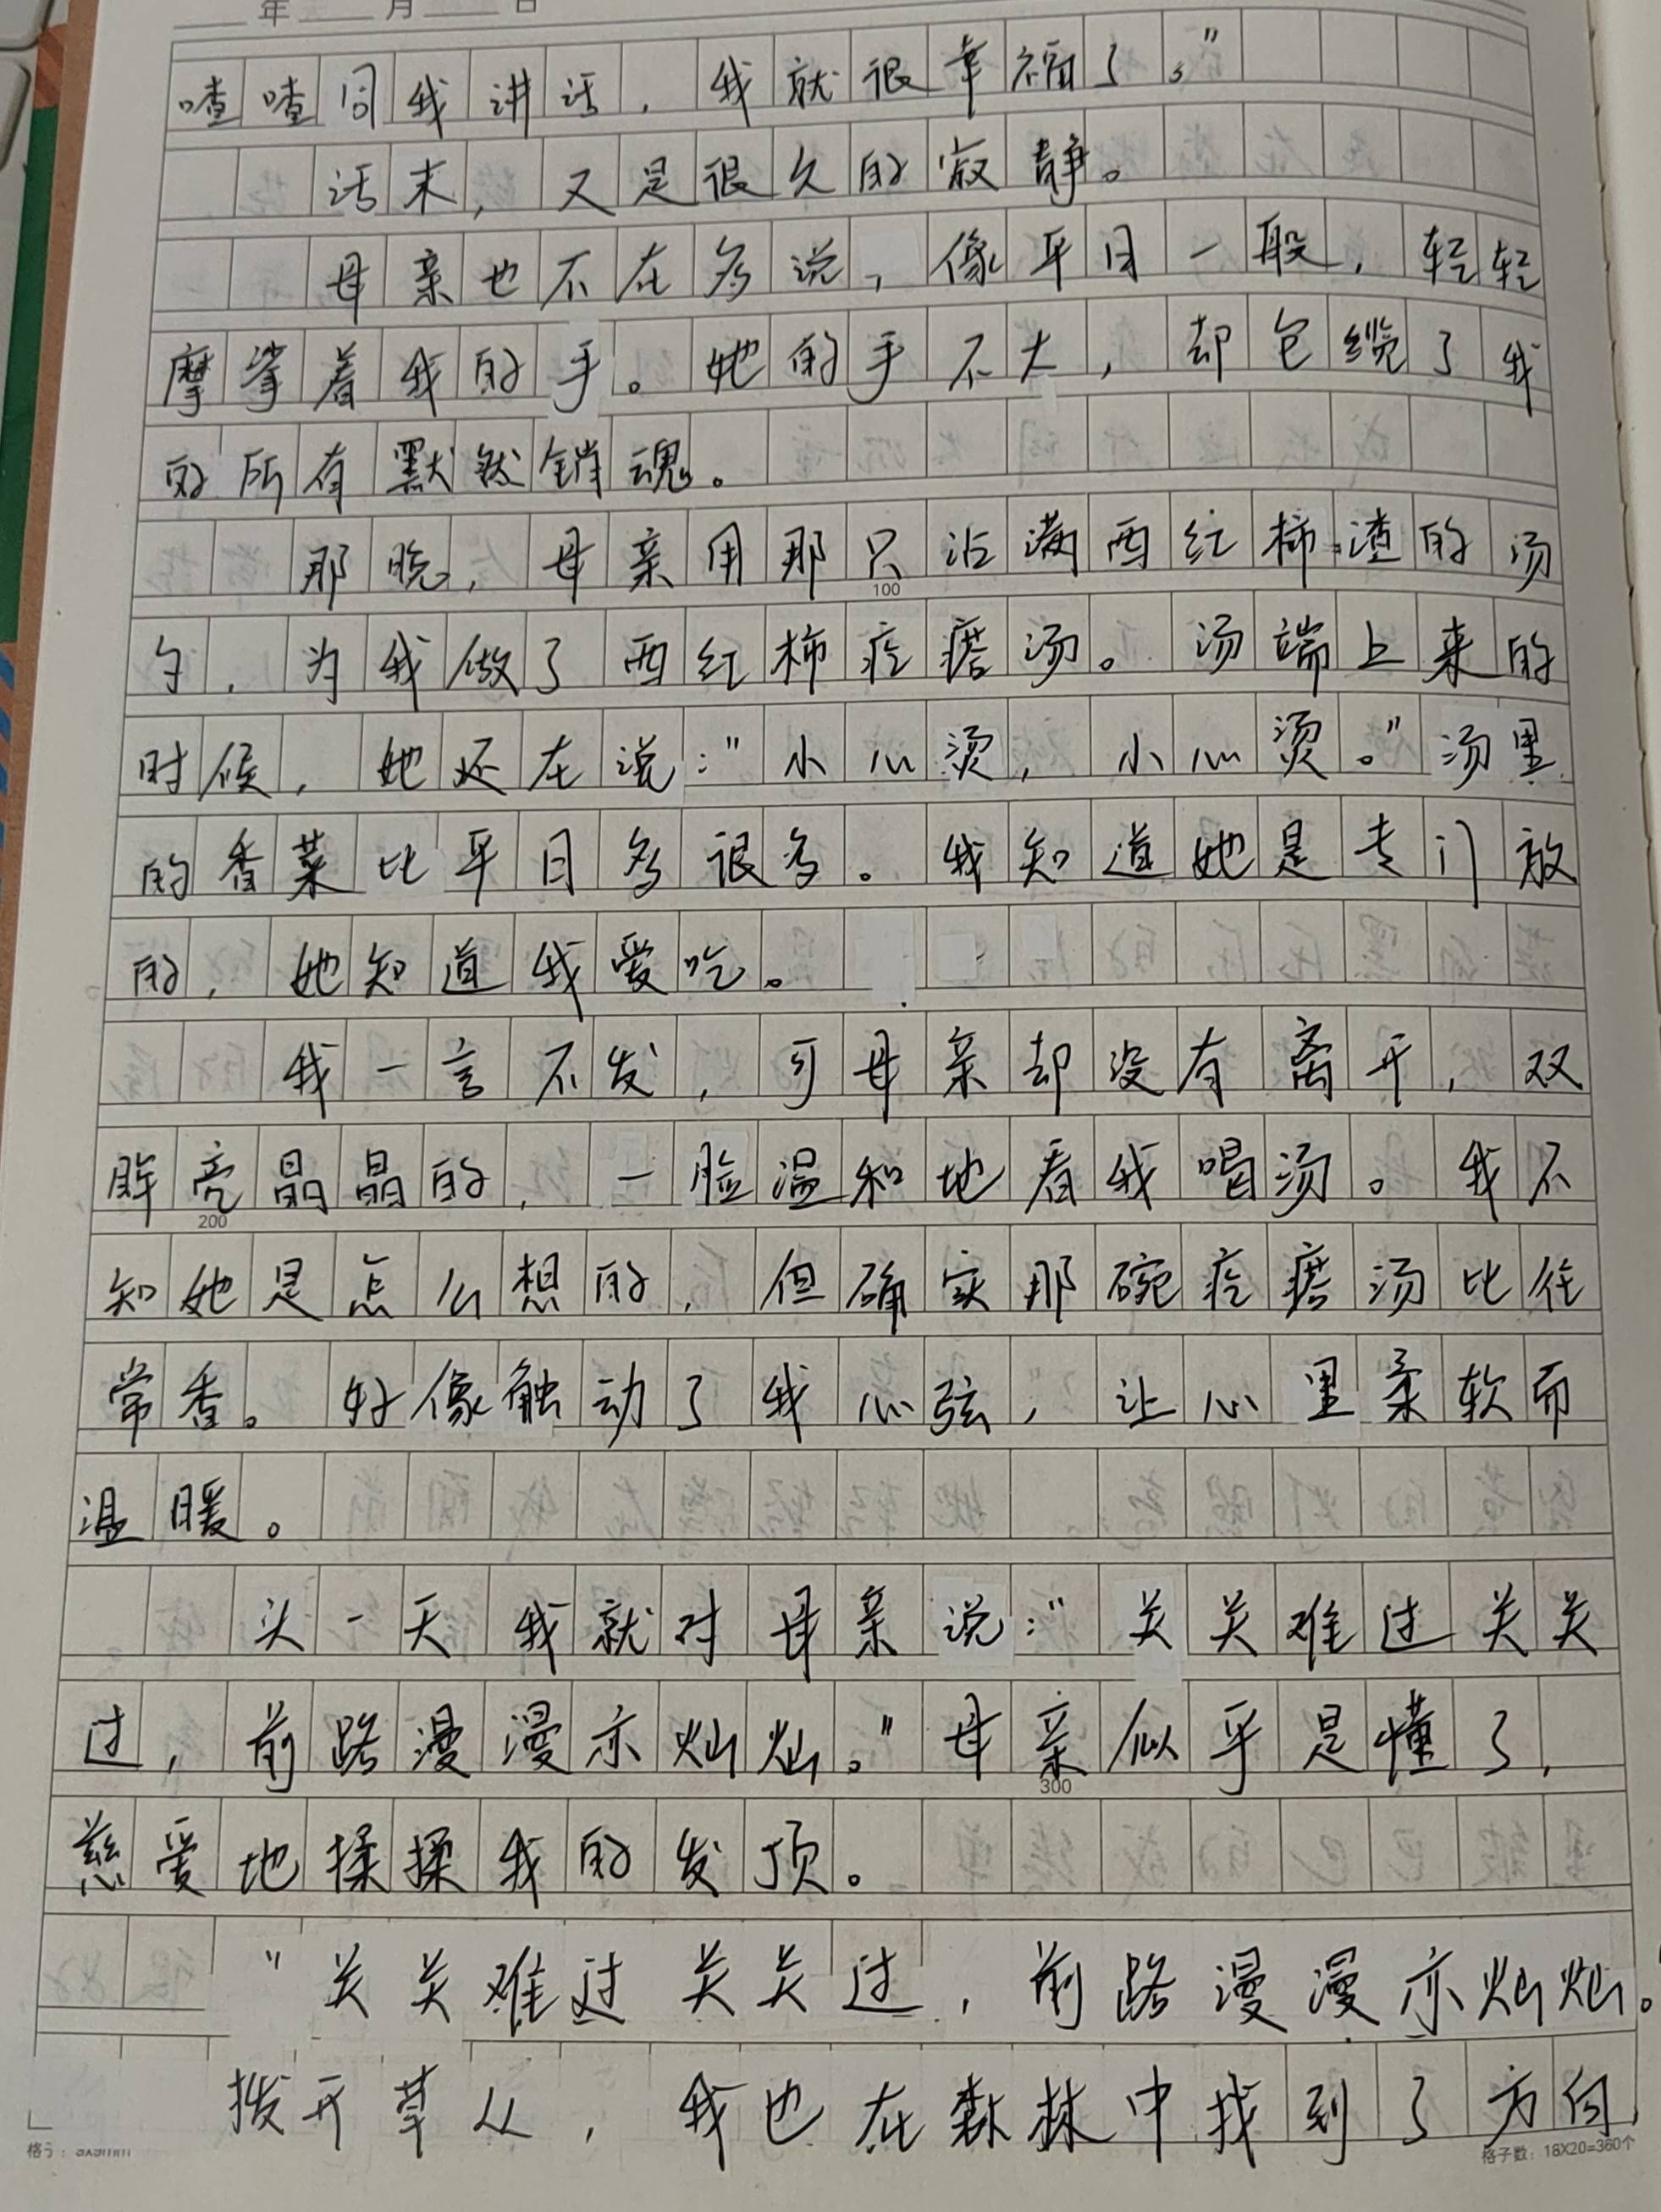 年 月 日
喳喳同我讲话，我就很幸福了。”
话末，又是很久的寂静。
母亲也不在多说，像平日一般，轻轻
摩挲着我的手。她的手不大，却包缆了我
的所有默然销魂。
那晚，母亲用那只沾满西红柿渣的汤
100
勺，为我做了西红柿疙瘩汤。汤端上来的
时候，她还在说：“小心烫，小心烫。”汤里
的香菜比平日多很多。我知道她是专门放
的，她知道我爱吃。
我一言不发，可母亲却没有离开，双
眸亮晶晶的，一脸温和地看我喝汤。我不
200
知她是怎么想的，但确实那碗疙瘩汤比往
常香。好像触动了我心弦，让心里柔软而
温暖。
头一天我就对母亲说：“关关难过关关
过，前路漫漫亦灿灿。”母亲似乎是懂了，
300
慈爱地揉揉我的发顶。
“关关难过关关过，前路漫漫亦灿灿。”
拨开草丛，我也在森林中找到了方向
格子数：18X20=360个